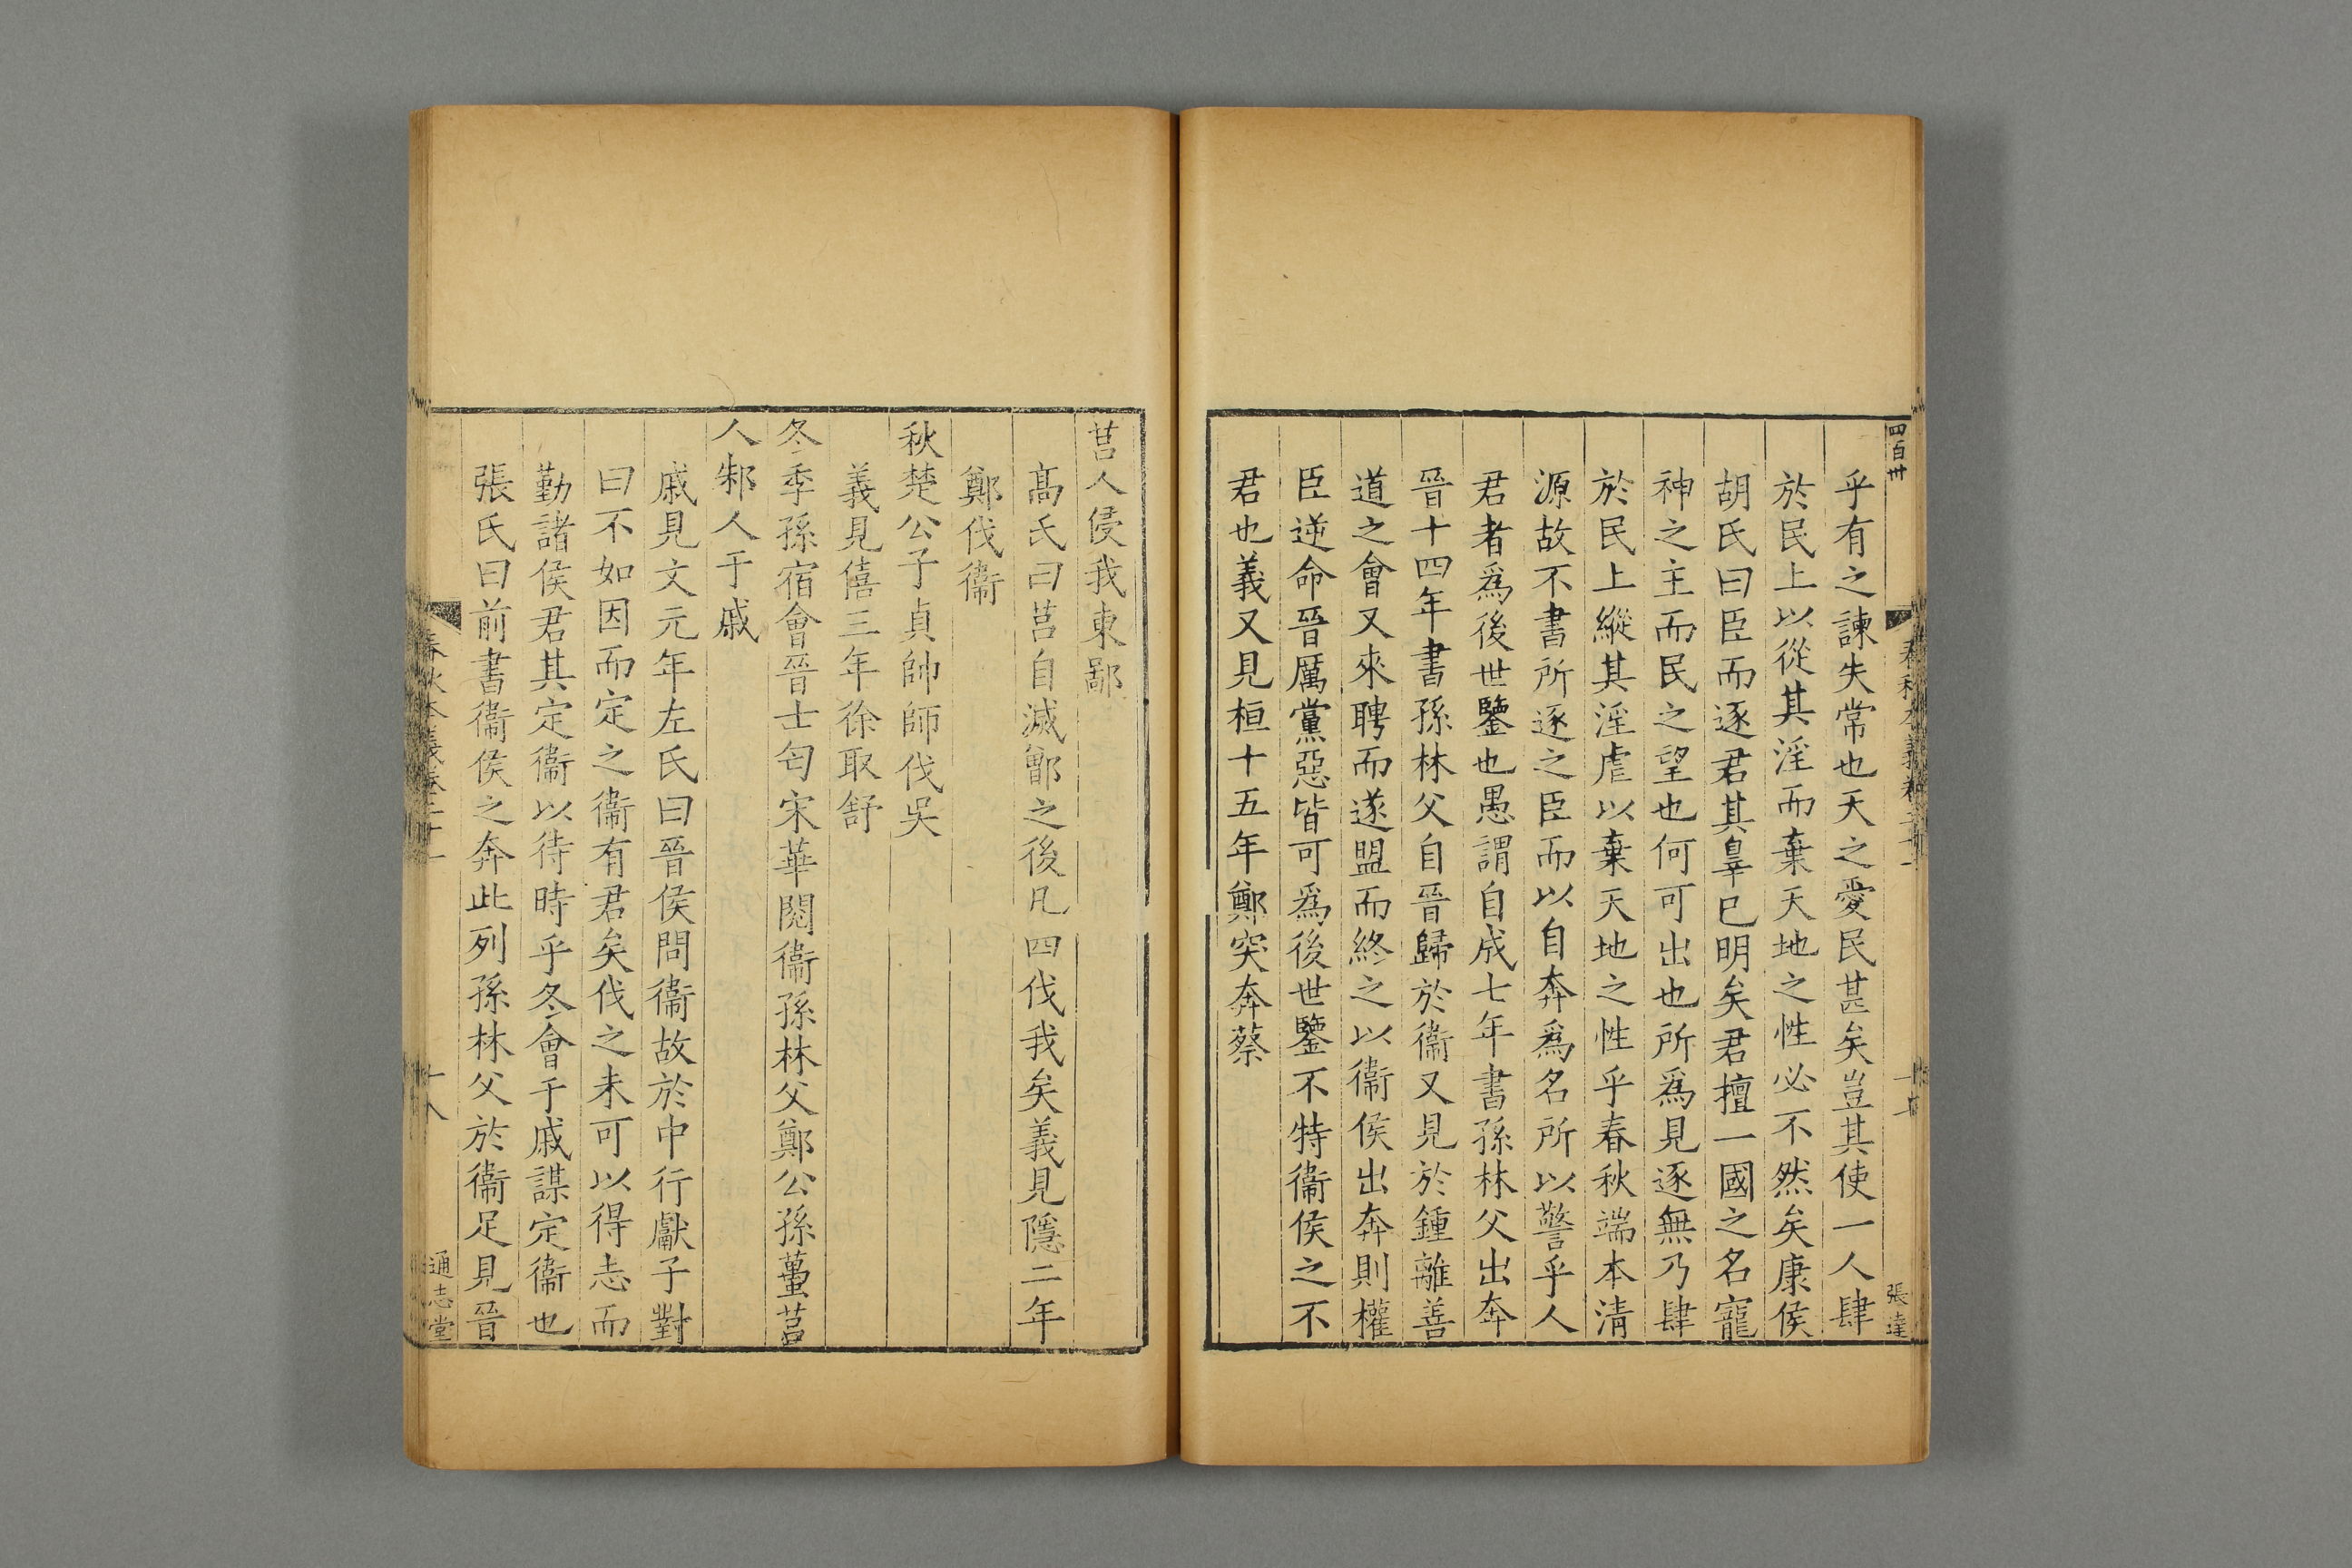 四百卅
乎有之諫失常也天之愛民甚矣豈其使一人肆
於民上以從其淫而棄天地之性必不然矣康侯
胡氏曰臣而逐君其辠已明矣君擅一國之名寵
神之主而民之望也何可出也所爲見逐無乃肆
於民上縱其淫虐以棄天地之性乎春秋端本清
源故不書所逐之臣而以自奔爲名所以警乎人
君者爲後世鑒也愚謂自成七年書孫林父出奔
晉十四年書孫林父自晉歸於衞又見於鍾離善
道之會又來聘而遂盟而終之以衞侯出奔則權
臣逆命晉厲黨惡皆可爲後世鑒不特衞侯之不
君也義又見桓十五年鄭突奔蔡
張達
莒人侵我東鄙
髙氏曰莒自滅鄫之後凡四伐我矣義見隱二年
鄭伐衞
秋楚公子貞帥師伐吳
義見僖三年徐取舒
冬季孫宿會晉士匄宋華閱衞孫林父鄭公孫蠆莒
人邾人于戚
戚見文元年左氏曰晉侯問衞故於中行獻子對
曰不如因而定之衞有君矣伐之未可以得志而
勤諸侯君其定衞以待時乎冬會于戚謀定衞也
張氏曰前書衞侯之奔此列孫林父於衞足見晉
春秋本義卷二十一
十八
通志堂